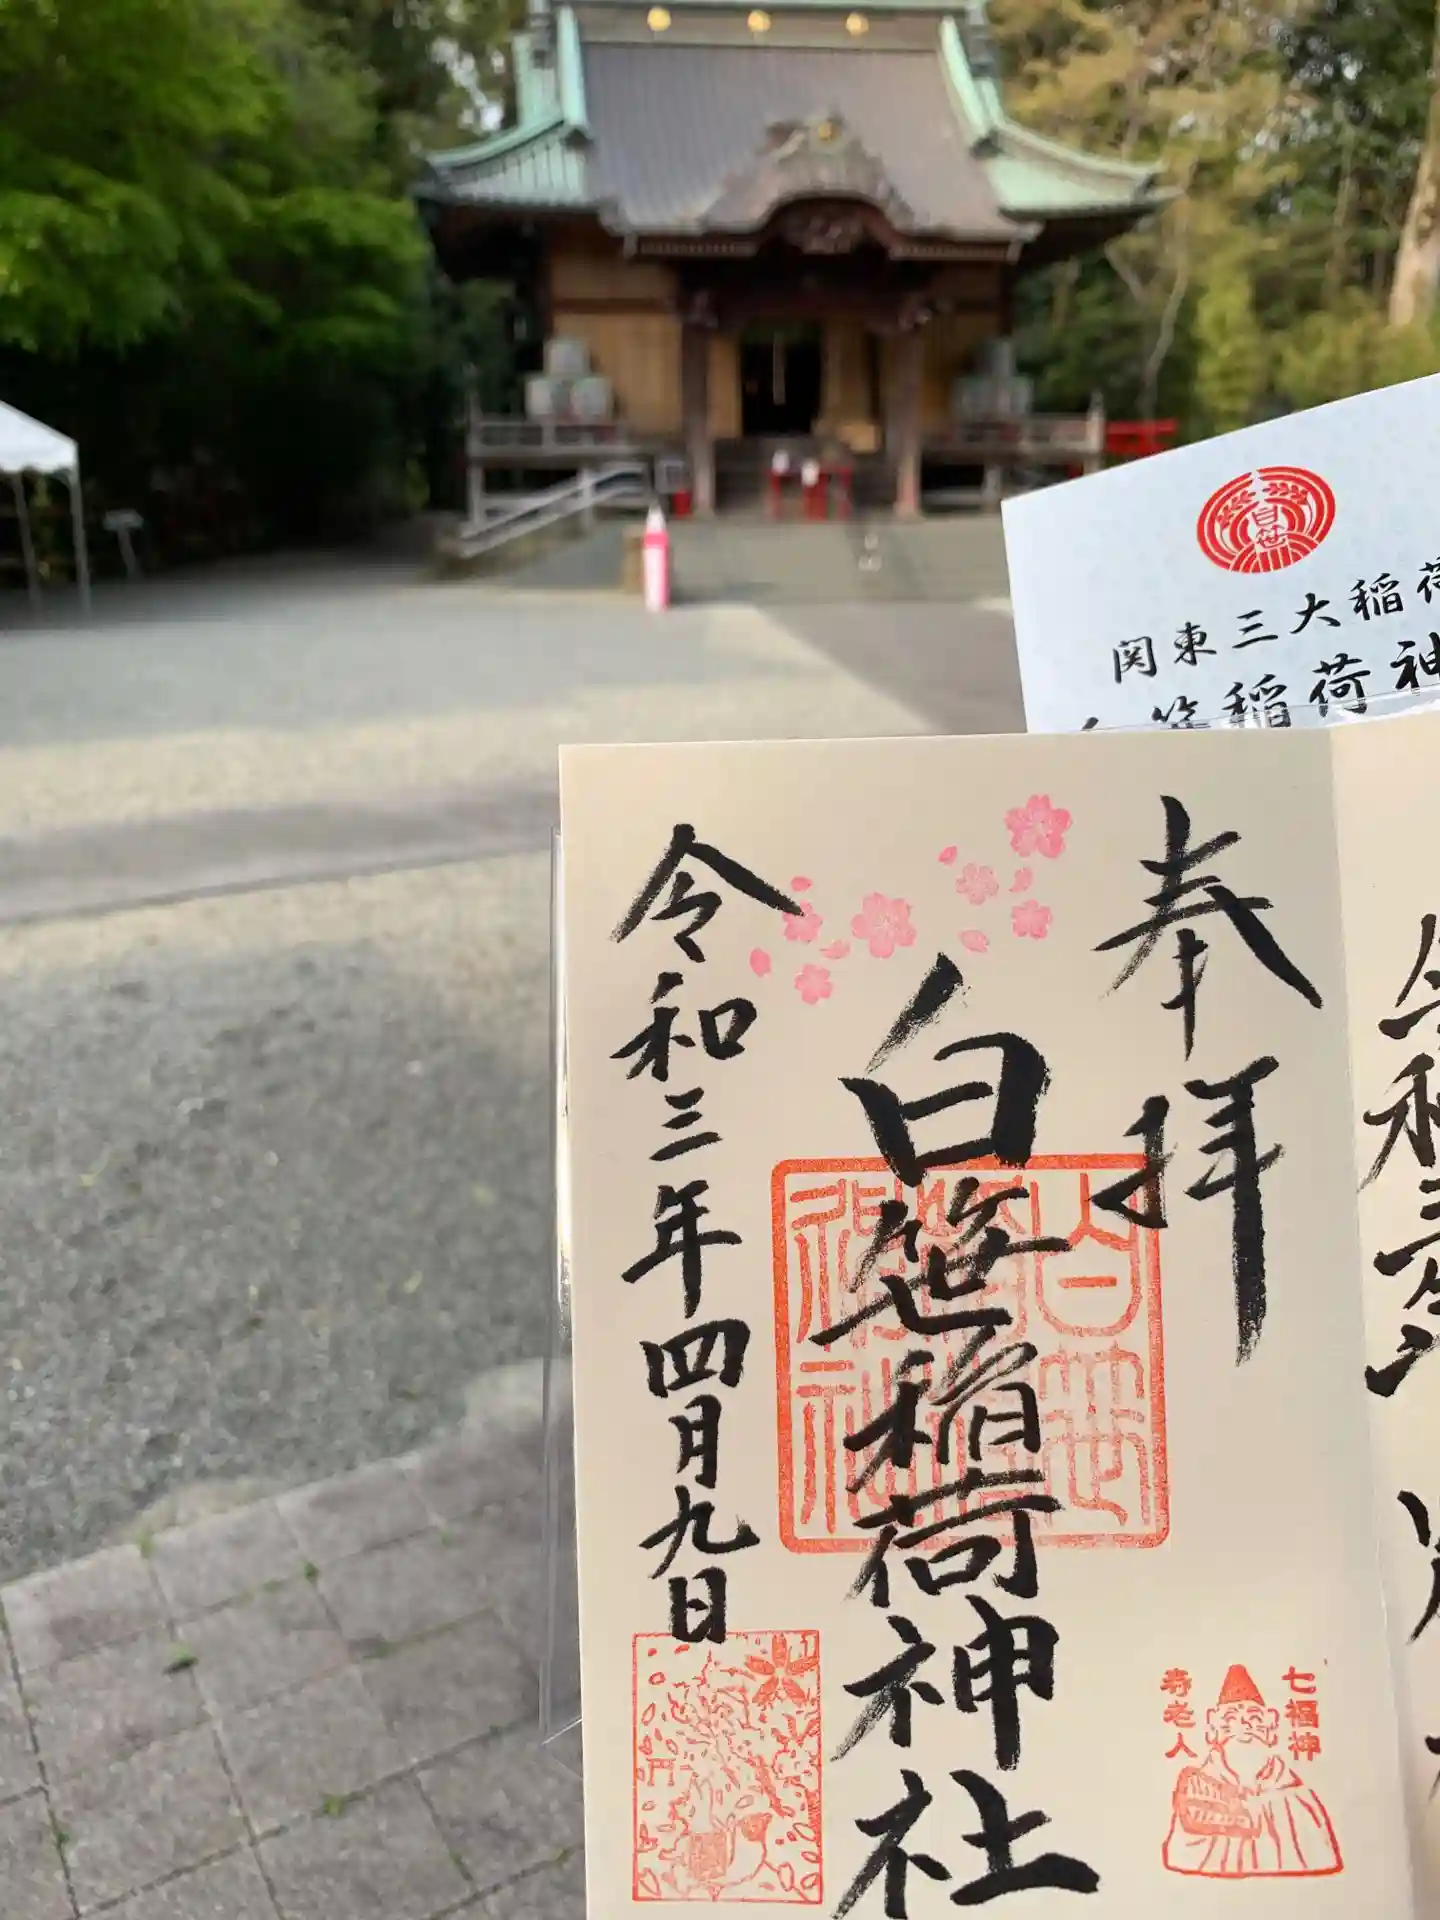 白笹
関東三大稲荷
白笹稲荷神
奉拝
白笹稲荷神社
令和三年四月九日
七福神
寿老人
令和三年